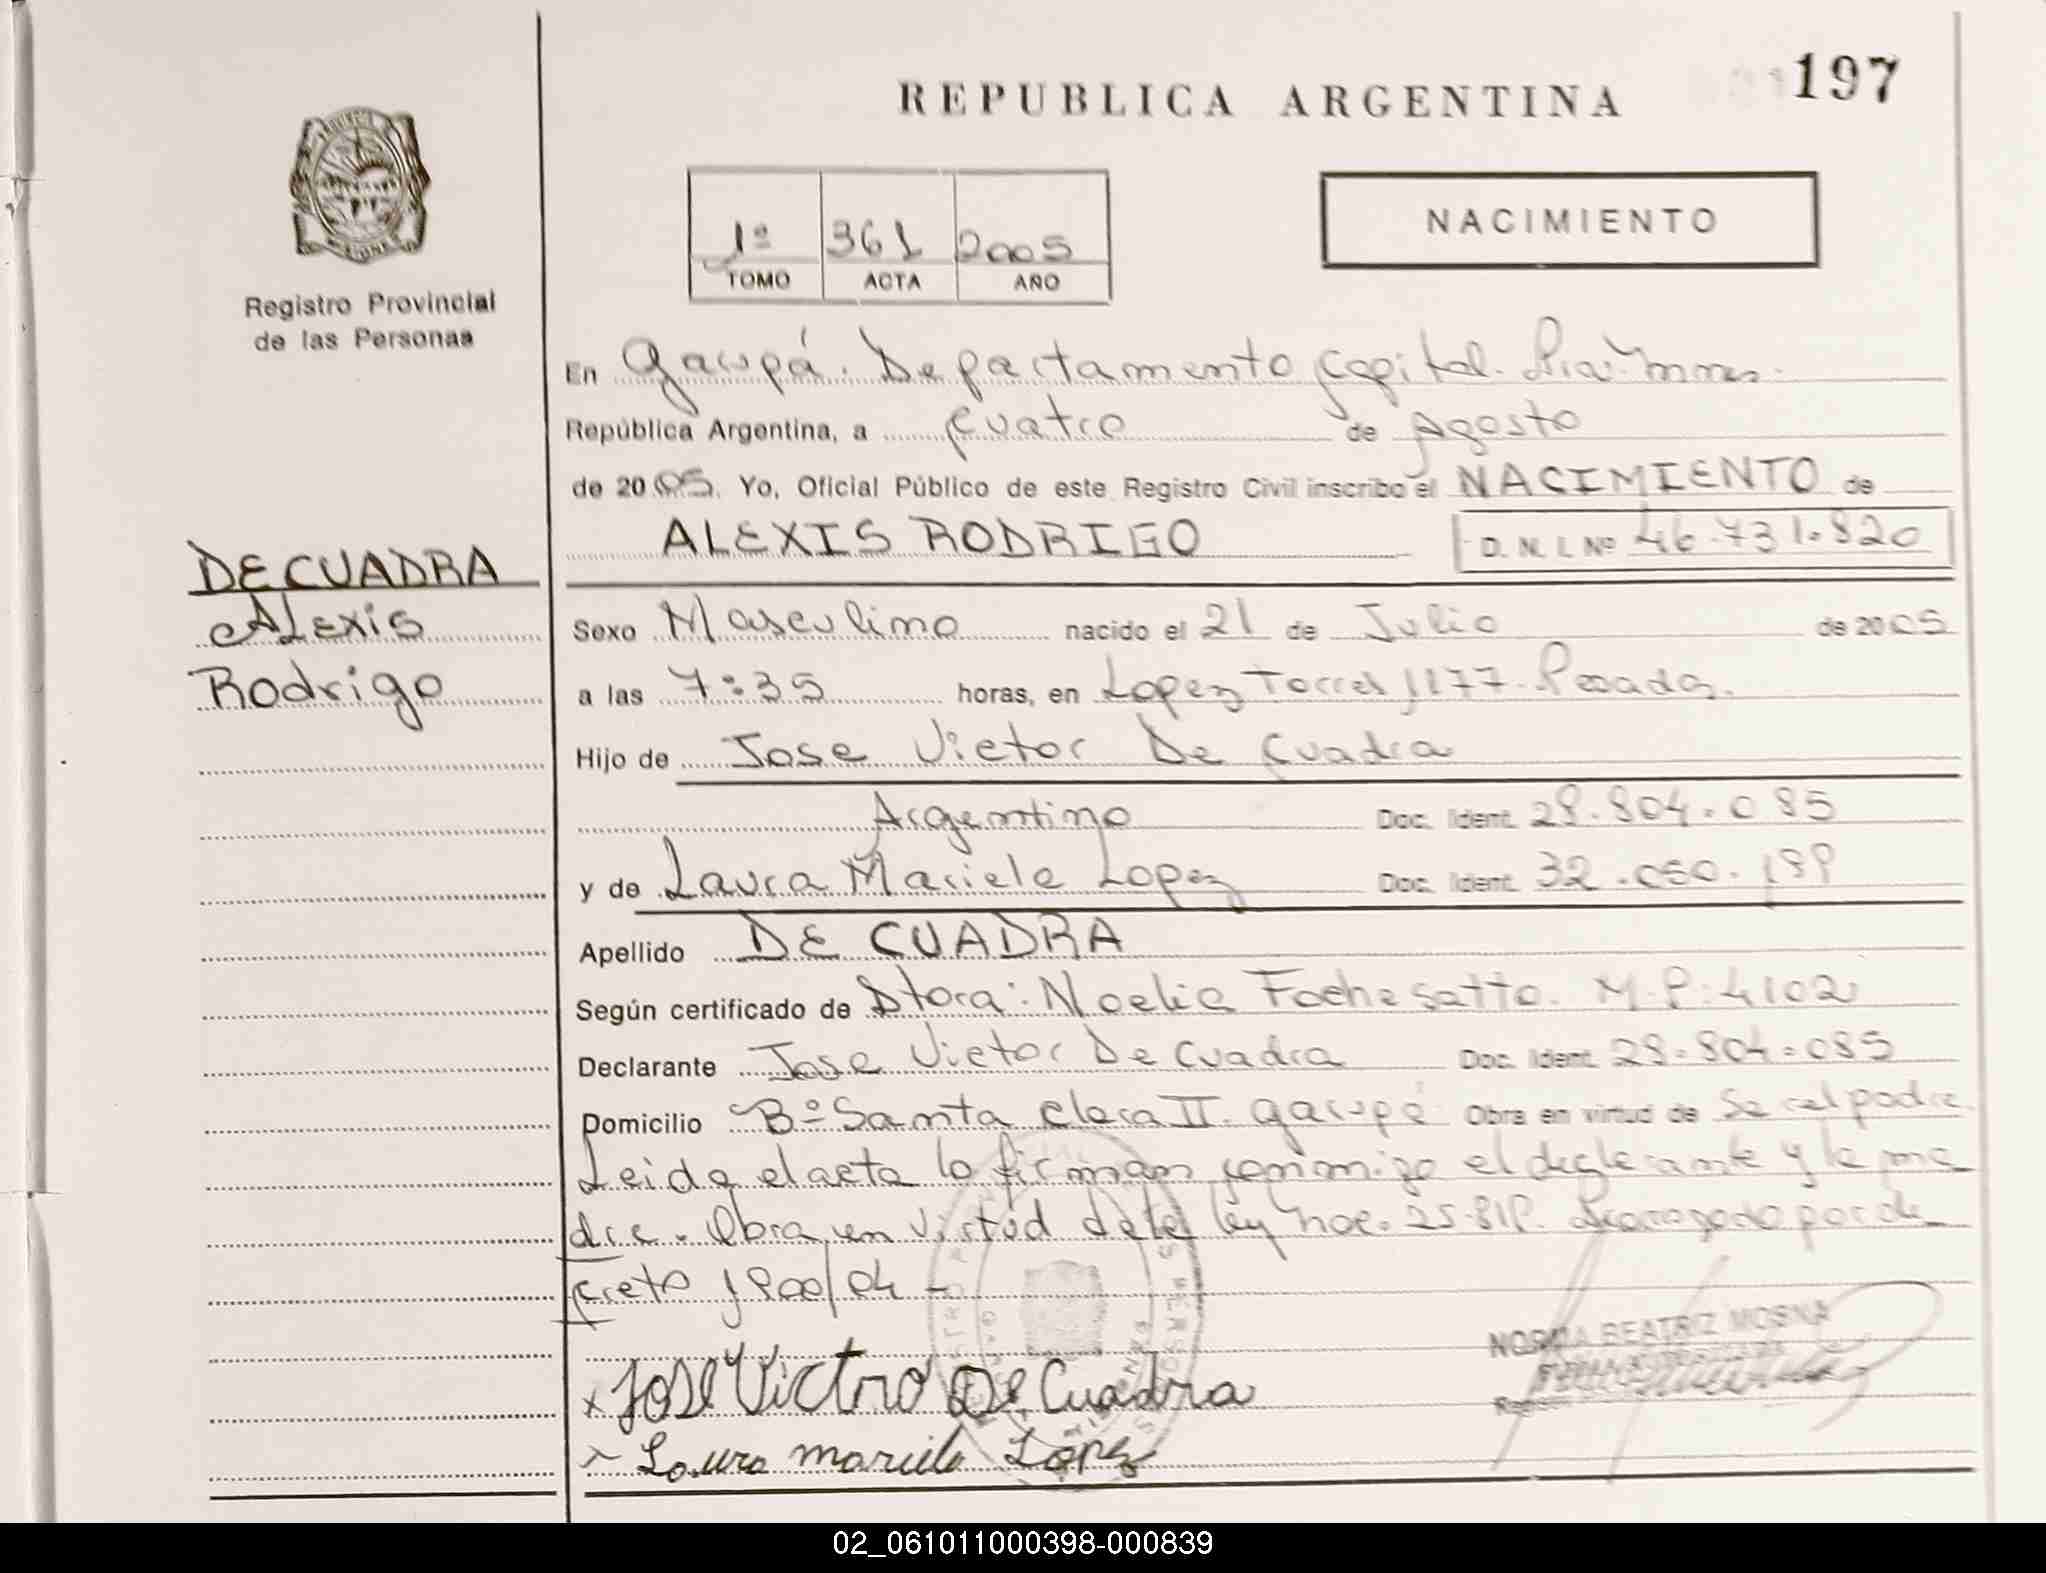 197
REPUBLICA ARGENTINA
NACIMIENTO
1º 361 2005
TOMO ACTA AÑO
Registro Provincial
de las Personas
En Garupá. Departamento Capital.
República Argentina, a Cuatro de Agosto
de 2005. Yo, Oficial Público de este Registro Civil inscribo el NACIMIENTO de
ALEXIS RODRIGO D.N.I. Nº 46.731.820
DE CUADRA
Alexis
Rodrigo
Sexo Masculino nacido el 21 de Julio de 2005
a las 7:35 horas, en Lopez Torres 1177. Posadas.
Hijo de Jose Victor De Cuadra
Argentino Doc. Ident. 28.804.085
y de Laura Mariela Lopez Doc. Ident. 32.050.189
Apellido DE CUADRA
Según certificado de Dtora: Noelia Fochesatto. M.P: 4102
Declarante Jose Victor De Cuadra Doc. Ident. 28.804.085
Domicilio Bº Santa Clara II. Garupá Obra en virtud de Ser el padre
Leida el acta la firman conmigo el declarante y la ma
dre. Obra en virtud de la ley nac. 25.819. Prorrogado por de
creto 1900/04
x José Victro De Cuadra
Laura mariela López
NORMA BEATRIZ MOSNA
02_061011000398-000839